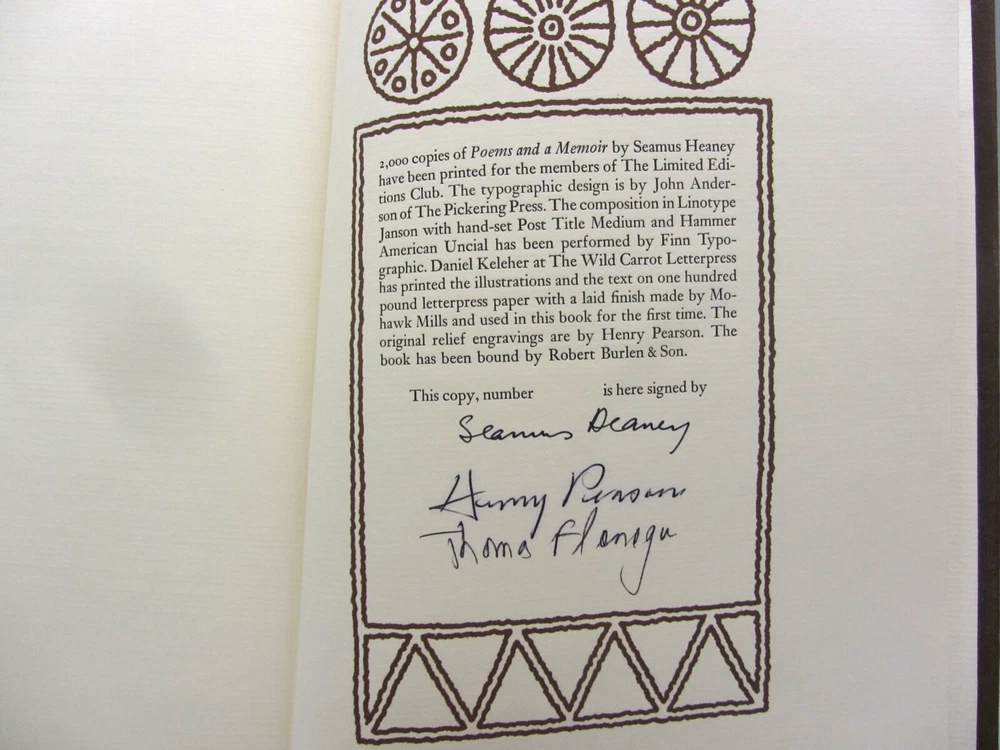 2,000 copies of Poems and a Memoir by Seamus Heaney
have been printed for the members of The Limited Edi-
tions Club. The typographic design is by John Ander-
son of The Pickering Press. The composition in Linotype
Janson with hand-set Post Title Medium and Hammer
American Uncial has been performed by Finn Typo-
graphic. Daniel Keleher at The Wild Carrot Letterpress
has printed the illustrations and the text on one hundred
pound letterpress paper with a laid finish made by Mo-
hawk Mills and used in this book for the first time. The
original relief engravings are by Henry Pearson. The
book has been bound by Robert Burlen & Son.
This copy, number is here signed by
Seamus Heaney
Henry Pearson
Thomas Flanagan